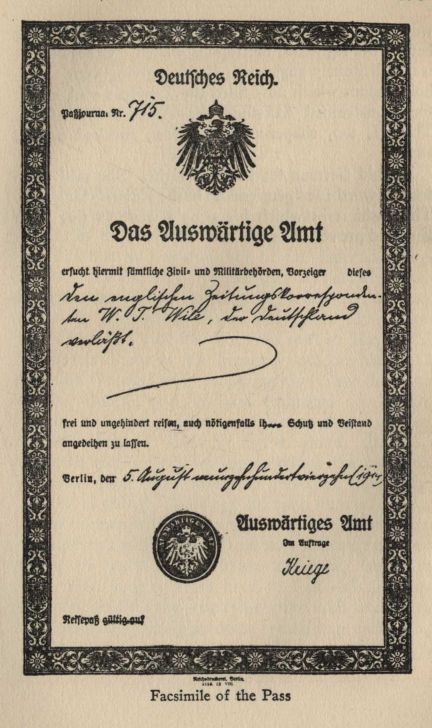 Deutsches Reich.
Paßjournal Nr. 715.
Das Auswärtige Amt
ersucht hiermit sämtliche Zivil- und Militärbehörden, Vorzeiger dieses
den englischen Zeitungskorresponden-
ten W. T. Wile, der Deutschland
verläßt.
frei und ungehindert reisen, auch nötigenfalls ihm Schutz und Beistand
angedeihen zu lassen.
Berlin, den 5. August neunzehnhundertvierzehn (1914)
AUSWÄRTIGES
Auswärtiges Amt
Im Auftrage
Kriege
Reisepaß gültig auf
Reichsdruckerei, Berlin.
Facsimile of the Pass